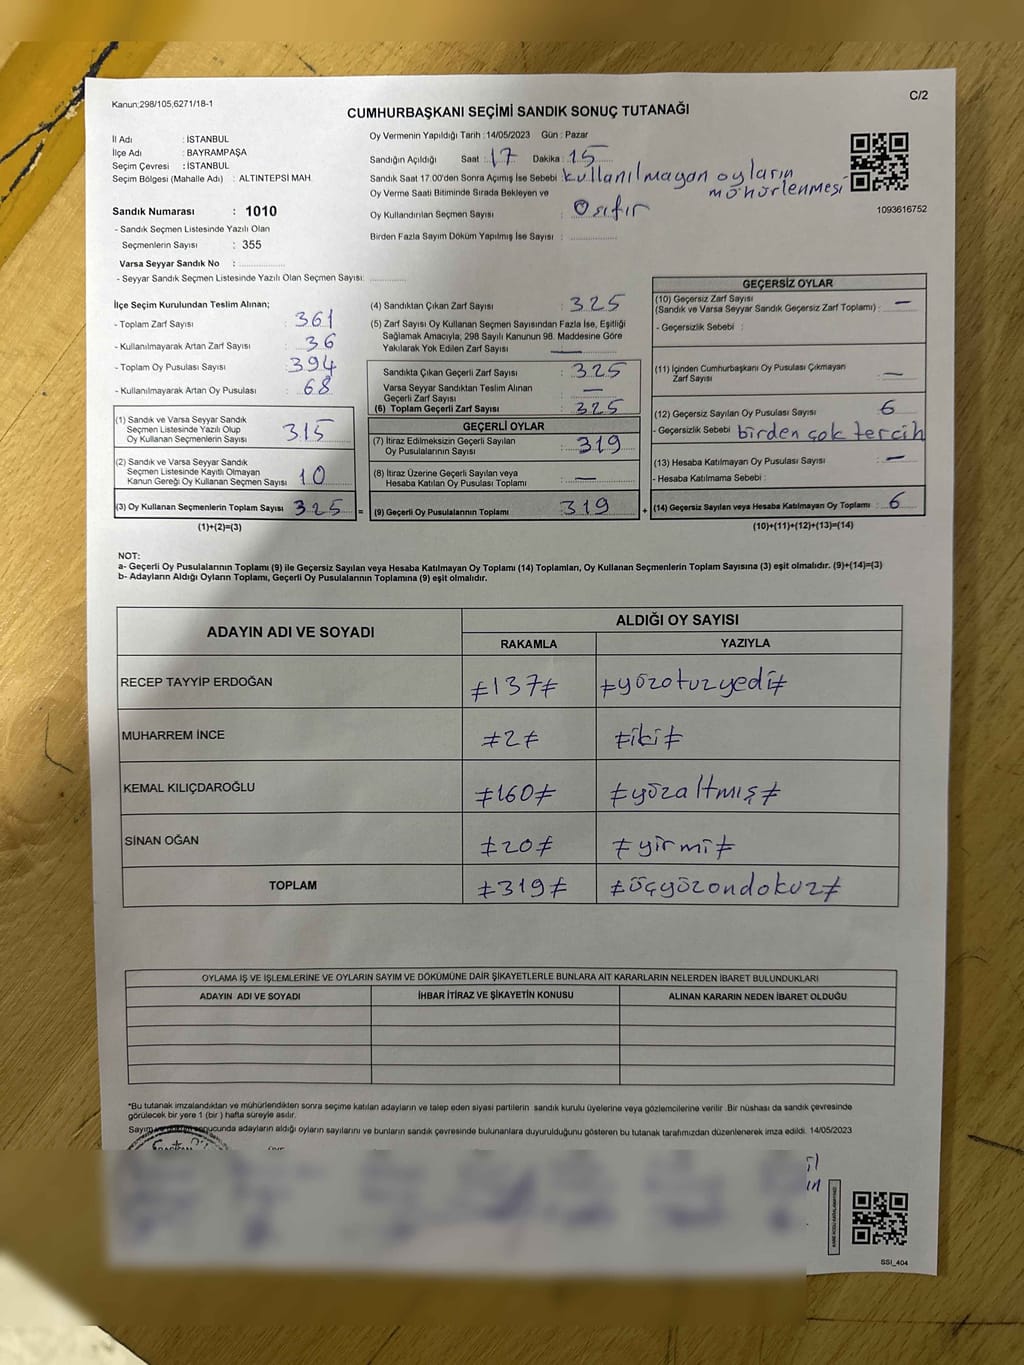 Kanun;298/105;6271/18-1
C/2
CUMHURBAŞKANI SEÇİMİ SANDIK SONUÇ TUTANAĞI
İl Adı : İSTANBUL
İlçe Adı : BAYRAMPAŞA
Seçim Çevresi : İSTANBUL
Seçim Bölgesi (Mahalle Adı) : ALTINTEPSİ MAH.
Sandık Numarası : 1010
- Sandık Seçmen Listesinde Yazılı Olan
Seçmenlerin Sayısı : 355
Varsa Seyyar Sandık No :
- Seyyar Sandık Seçmen Listesinde Yazılı Olan Seçmen Sayısı:
Oy Vermenin Yapıldığı Tarih :14/05/2023 Gün : Pazar
Sandığın Açıldığı Saat : 17 Dakika : 15
Sandık Saat 17.00'den Sonra Açımış İse Sebebi kullanılmayan oyların
mühürlenmesi
Oy Verme Saati Bitiminde Sırada Bekleyen ve
Oy Kullandırılan Seçmen Sayısı : 0 sıfır
Birden Fazla Sayım Döküm Yapılmış İse Sayısı :
1093616752
İlçe Seçim Kurulundan Teslim Alınan;
- Toplam Zarf Sayısı : 361
- Kullanılmayarak Artan Zarf Sayısı : 36
- Toplam Oy Pusulası Sayısı : 394
- Kullanılmayarak Artan Oy Pusulası : 68
(1) Sandık ve Varsa Seyyar Sandık
Seçmen Listesinde Yazılı Olup
Oy Kullanan Seçmenlerin Sayısı : 315
(2) Sandık ve Varsa Seyyar Sandık
Seçmen Listesinde Kayıtlı Olmayan
Kanun Gereği Oy Kullanan Seçmen Sayısı : 10
(3) Oy Kullanan Seçmenlerin Toplam Sayısı : 325 =
(1)+(2)=(3)
(4) Sandıktan Çıkan Zarf Sayısı : 325
(5) Zarf Sayısı Oy Kullanan Seçmen Sayısından Fazla İse, Eşitliği
Sağlamak Amacıyla; 298 Sayılı Kanunun 98. Maddesine Göre
Yakılarak Yok Edilen Zarf Sayısı : —
Sandıkta Çıkan Geçerli Zarf Sayısı : 325
Varsa Seyyar Sandıktan Teslim Alınan
Geçerli Zarf Sayısı : —
(6) Toplam Geçerli Zarf Sayısı : 325
GEÇERLİ OYLAR
(7) İtiraz Edilmeksizin Geçerli Sayılan
Oy Pusulalarının Sayısı : 319
(8) İtiraz Üzerine Geçerli Sayılan veya
Hesaba Katılan Oy Pusulası Toplamı : —
(9) Geçerli Oy Pusulalarının Toplamı : 319 +
GEÇERSİZ OYLAR
(10) Geçersiz Zarf Sayısı
(Sandık ve Varsa Seyyar Sandık Geçersiz Zarf Toplamı) : —
- Geçersizlik Sebebi :
(11) İçinden Cumhurbaşkanı Oy Pusulası Çıkmayan
Zarf Sayısı : —
(12) Geçersiz Sayılan Oy Pusulası Sayısı : 6
- Geçersizlik Sebebi : birden çok tercih
(13) Hesaba Katılmayan Oy Pusulası Sayısı : —
- Hesaba Katılmama Sebebi :
(14) Geçersiz Sayılan veya Hesaba Katılmayan Oy Toplamı : 6
(10)+(11)+(12)+(13)=(14)
NOT:
a- Geçerli Oy Pusulalarının Toplamı (9) ile Geçersiz Sayılan veya Hesaba Katılmayan Oy Toplamı (14) Toplamları, Oy Kullanan Seçmenlerin Toplam Sayısına (3) eşit olmalıdır. (9)+(14)=(3)
b- Adayların Aldığı Oyların Toplamı, Geçerli Oy Pusulalarının Toplamına (9) eşit olmalıdır.
ADAYIN ADI VE SOYADI
ALDIĞI OY SAYISI
RAKAMLA YAZIYLA
RECEP TAYYİP ERDOĞAN ≠137≠ ≠yüzotuzyedi≠
MUHARREM İNCE ≠2≠ ≠iki≠
KEMAL KILIÇDAROĞLU ≠160≠ ≠yüzaltmış≠
SİNAN OĞAN ≠20≠ ≠yirmi≠
TOPLAM ≠319≠ ≠üçyüzondokuz≠
OYLAMA İŞ VE İŞLEMLERİNE VE OYLARIN SAYIM VE DÖKÜMÜNE DAİR ŞİKAYETLERLE BUNLARA AİT KARARLARIN NELERDEN İBARET BULUNDUKLARI
ADAYIN ADI VE SOYADI İHBAR İTİRAZ VE ŞİKAYETİN KONUSU ALINAN KARARIN NEDEN İBARET OLDUĞU
*Bu tutanak imzalandıktan ve mühürlendikten sonra seçime katılan adayların ve talep eden siyasi partilerin sandık kurulu üyelerine veya gözlemcilerine verilir .Bir nüshası da sandık çevresinde
görülecek bir yere 1 (bir ) hafta süreyle asılır.
Sayım ve döküm sonucunda adayların aldığı oyların sayılarını ve bunların sandık çevresinde bulunanlara duyurulduğunu gösteren bu tutanak tarafımızdan düzenlenerek imza edildi. 14/05/2023
SSİ_404